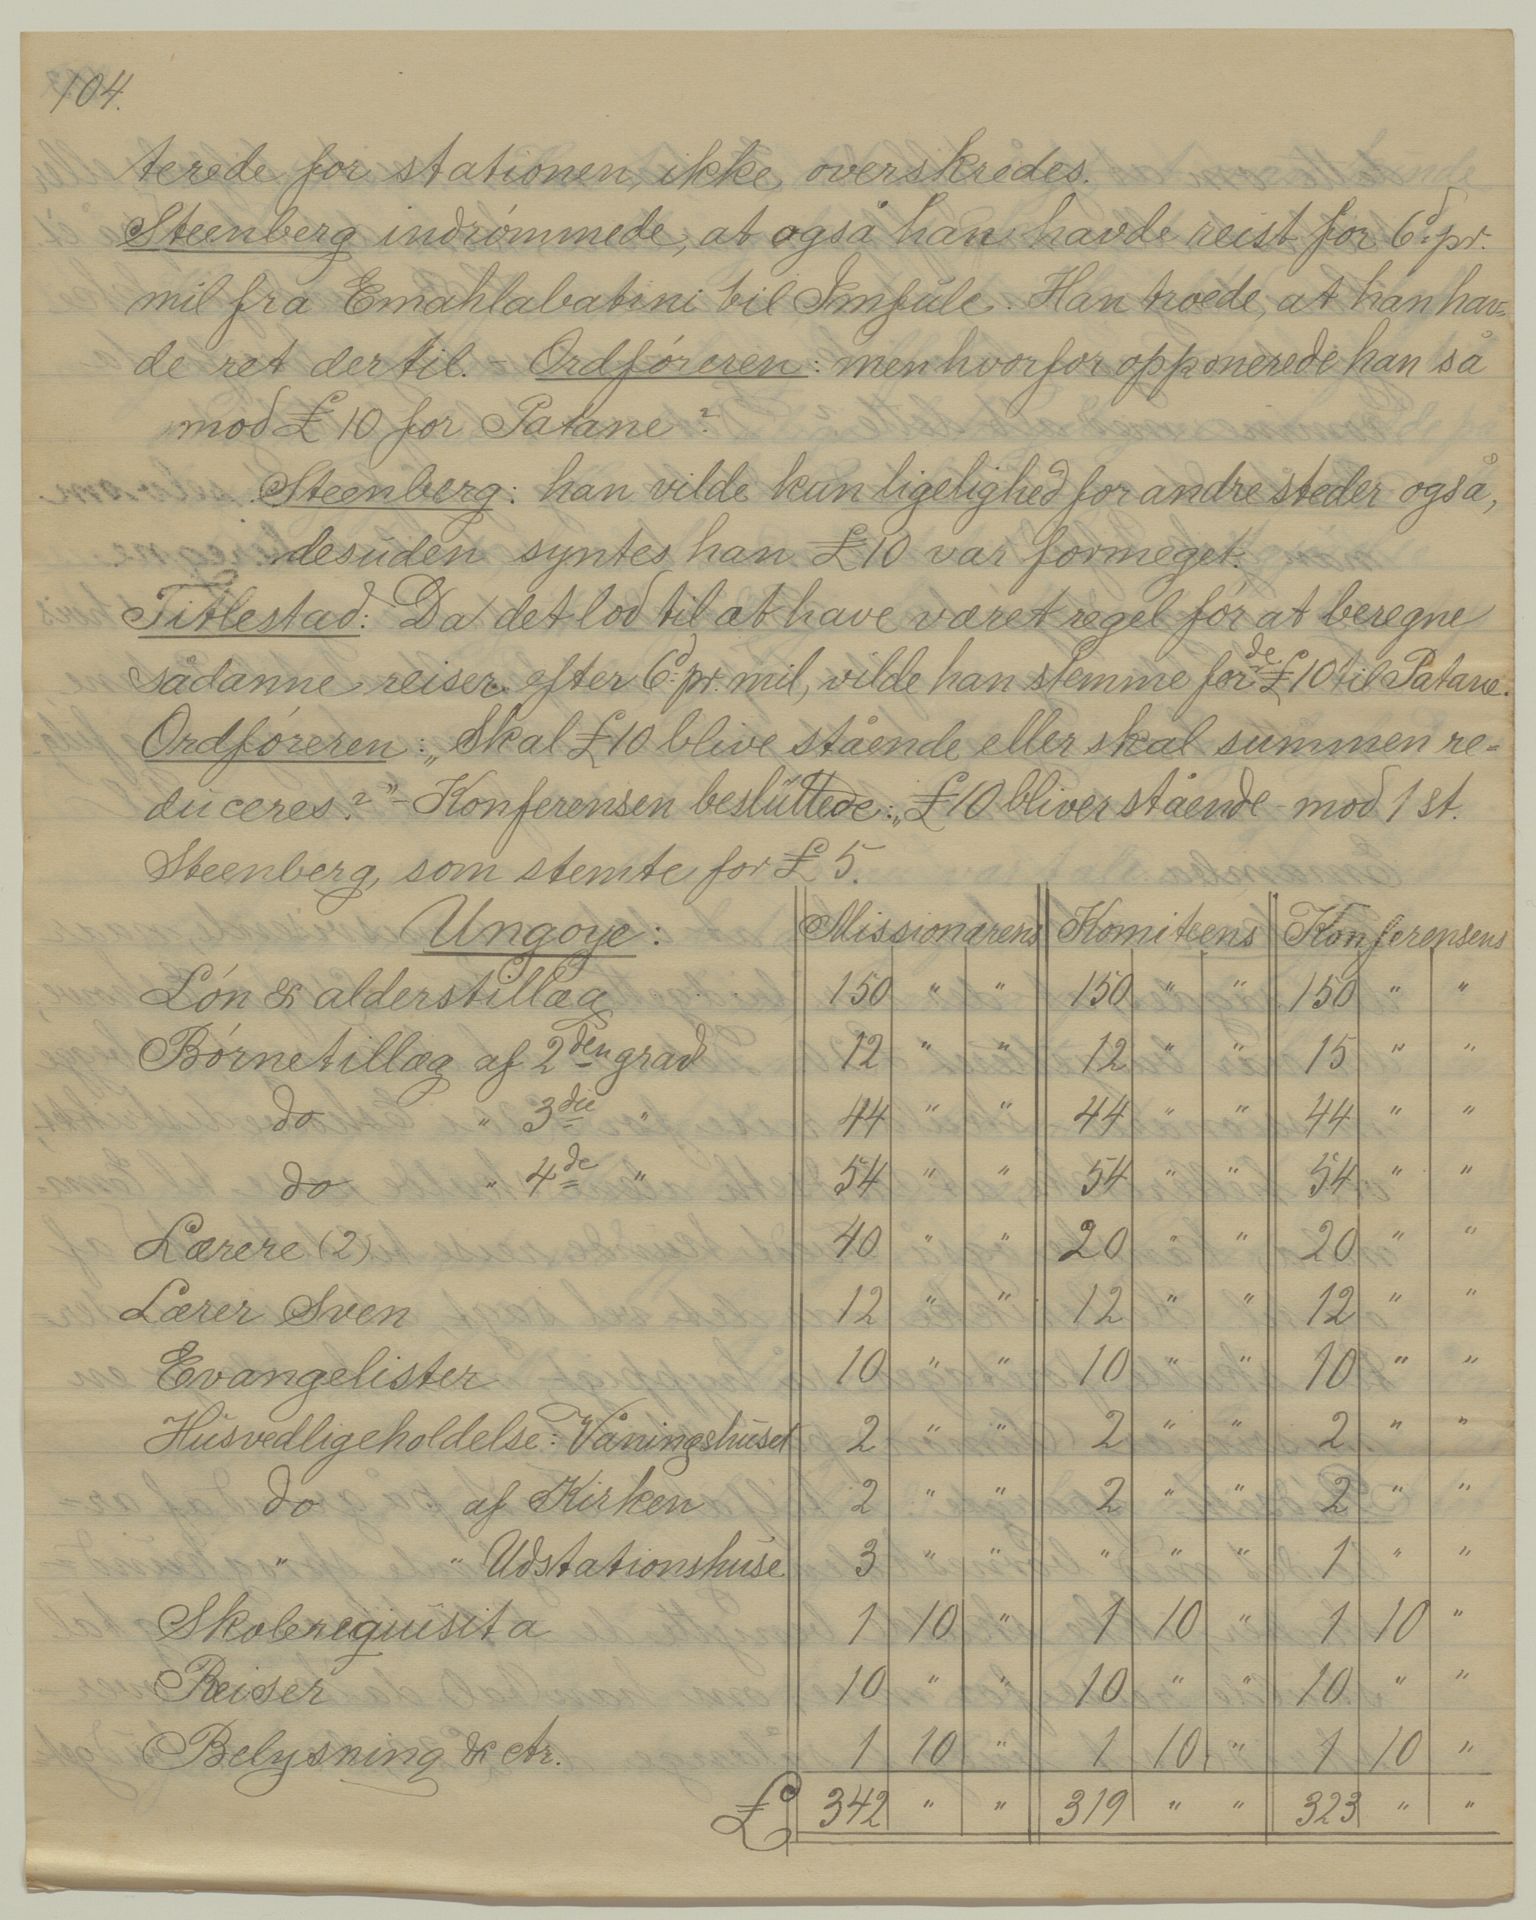 104.
terede for stationen, ikke overskredes.
Steenberg indrømmede, at også han havde reist for 6d. pr.
mil fra Emahlabatini til Imfule. Han troede, at han hav=
de ret dertil. - Ordføreren: men hvorfor opponerede han så
mod £10 for Patane?
Steenberg: han vilde kun ligelighed for andre steder også,
desuden syntes han £10 var formeget.
Titlestad: Da det lod til at have været regel før at beregne
sådanne reiser efter 6d. pr. mil, vilde han stemme for de £10 til Patane.
Ordføreren: „Skal £10 blive stående eller skal summen re=
duceres?" - Konferensen besluttede: „£10 bliver stående - mod 1 st.
Steenberg, som stemte for £5.
Ungoye: Missionærens Komiteens Konferensens
Løn & alderstillæg 150 " " 150 " " 150 " "
Børnetillæg af 2den grad 12 " " 12 " " 15 " "
do " 3die " 44 " " 44 " " 44 " "
do " 4de " 54 " " 54 " " 54 " "
Lærere (2) 40 " " 20 " " 20 " "
Lærer Sven 12 " " 12 " " 12 " "
Evangelister 10 " " 10 " " 10 " "
Husvedligeholdelse: Våningshuset 2 " " 2 " " 2 " "
do af Kirken 2 " " 2 " " 2 " "
" " Udstationshuse 3 " " " " " 1 " "
Skolerequisita 1 10 " 1 10 " 1 10 "
Reiser 10 " " 10 " " 10 " "
Belysning & ctr. 1 10 " 1 10 " 1 10 "
£ 342 " " 319 " " 323 " "